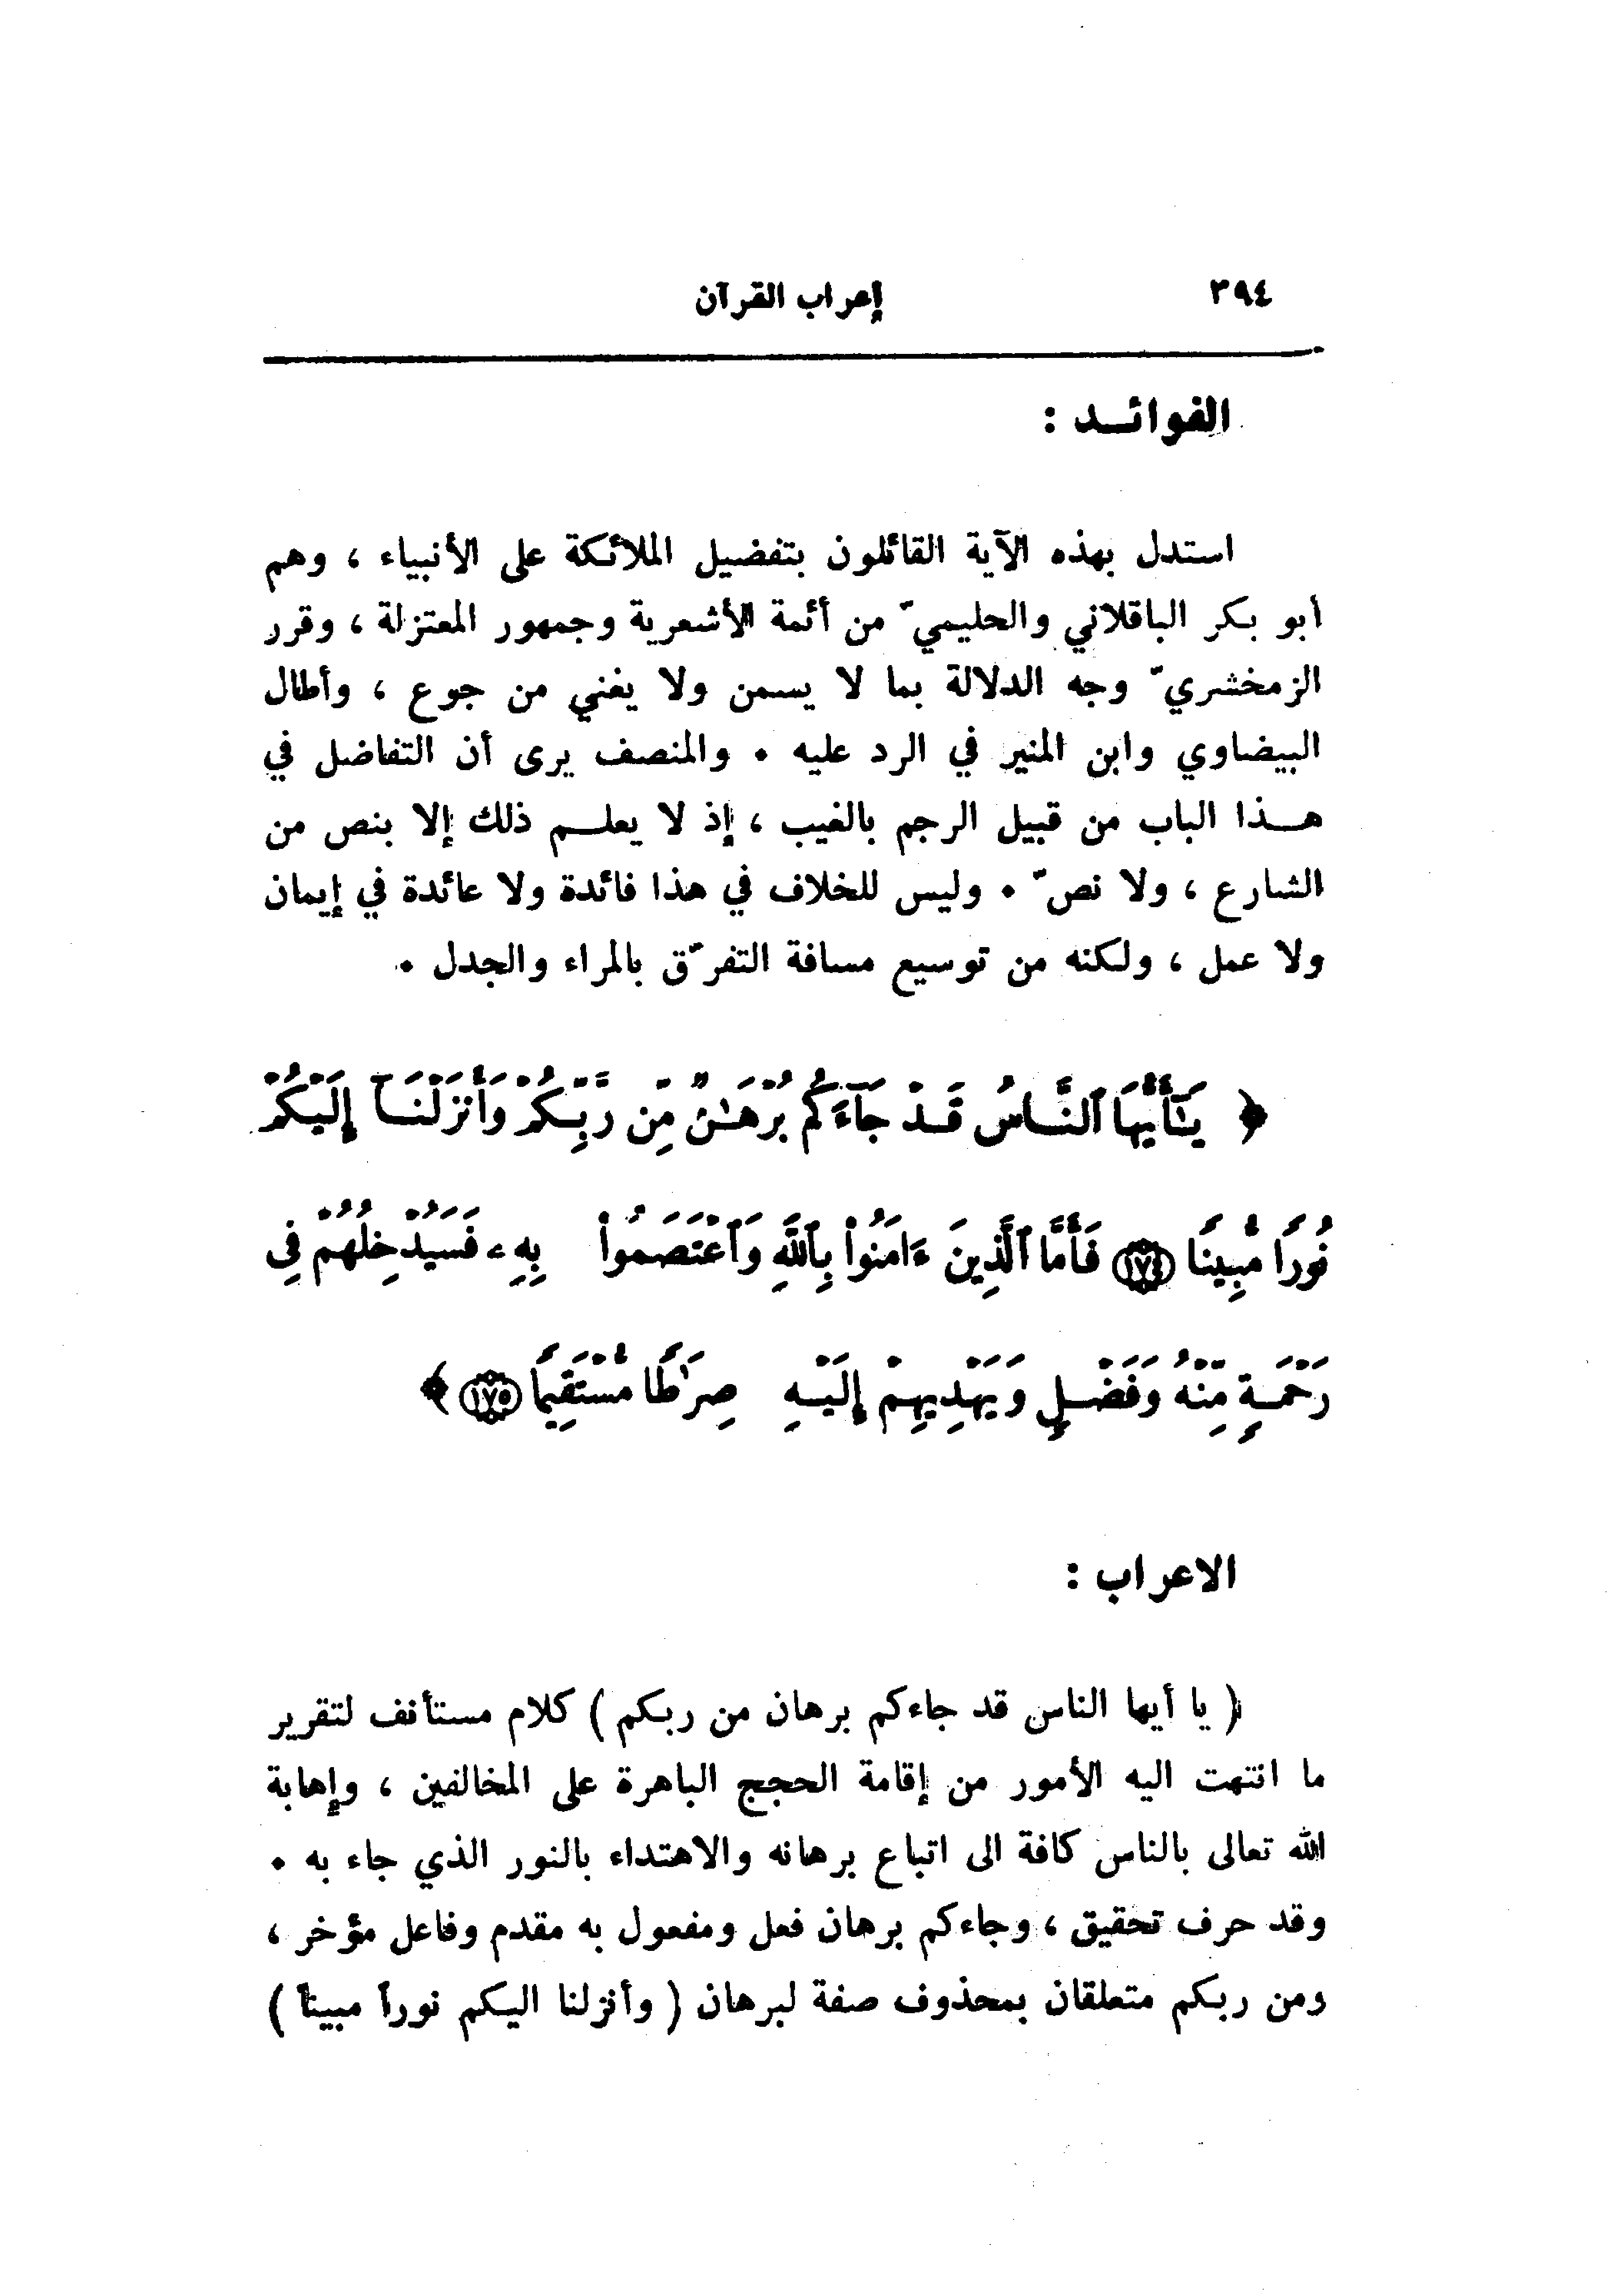 ٣٩٤
إعراب القرآن
الفوائـد :
استدل بهذه الآية القائلون بتفضيل الملائكة على الأنبياء ، وهم
أبو بكر الباقلاني والحليميّ من أئمة الأشعرية وجمهور المعتزلة ، وقرر
الزمخشريّ وجه الدلالة بما لا يسمن ولا يغني من جوع ، وأطال
البيضاوي وابن المنير في الرد عليه . والمنصف يرى أن التفاضل في
هـذا الباب من قبيل الرجم بالغيب ، إذ لا يعلـم ذلك إلا بنص من
الشارع ، ولا نصّ . وليس للخلاف في هذا فائدة ولا عائدة في إيمان
ولا عمل ، ولكنه من توسيع مسافة التفرّق بالمراء والجدل .
﴿ يَٰٓأَيُّهَا ٱلنَّاسُ قَدْ جَآءَكُم بُرْهَٰنٌ مِّن رَّبِّكُمْ وَأَنزَلْنَآ إِلَيْكُمْ
نُورًا مُّبِينًا ١٧٤ فَأَمَّا ٱلَّذِينَ ءَامَنُوا۟ بِٱللَّهِ وَٱعْتَصَمُوا۟ بِهِۦ فَسَيُدْخِلُهُمْ فِى
رَحْمَةٍ مِّنْهُ وَفَضْلٍ وَيَهْدِيهِمْ إِلَيْهِ صِرَٰطًا مُّسْتَقِيمًا ١٧٥ ﴾
الاعراب :
( يا أيها الناس قد جاءكم برهان من ربكم ) كلام مستأنف لتقرير
ما انتهت اليه الأمور من إقامة الحجج الباهرة على المخالفين ، وإهابة
الله تعالى بالناس كافة الى اتباع برهانه والاهتداء بالنور الذي جاء به .
وقد حرف تحقيق ، وجاءكم برهان فعل ومفعول به مقدم وفاعل مؤخر ،
ومن ربكم متعلقان بمحذوف صفة لبرهان ( وأنزلنا اليكم نوراً مبيناً )